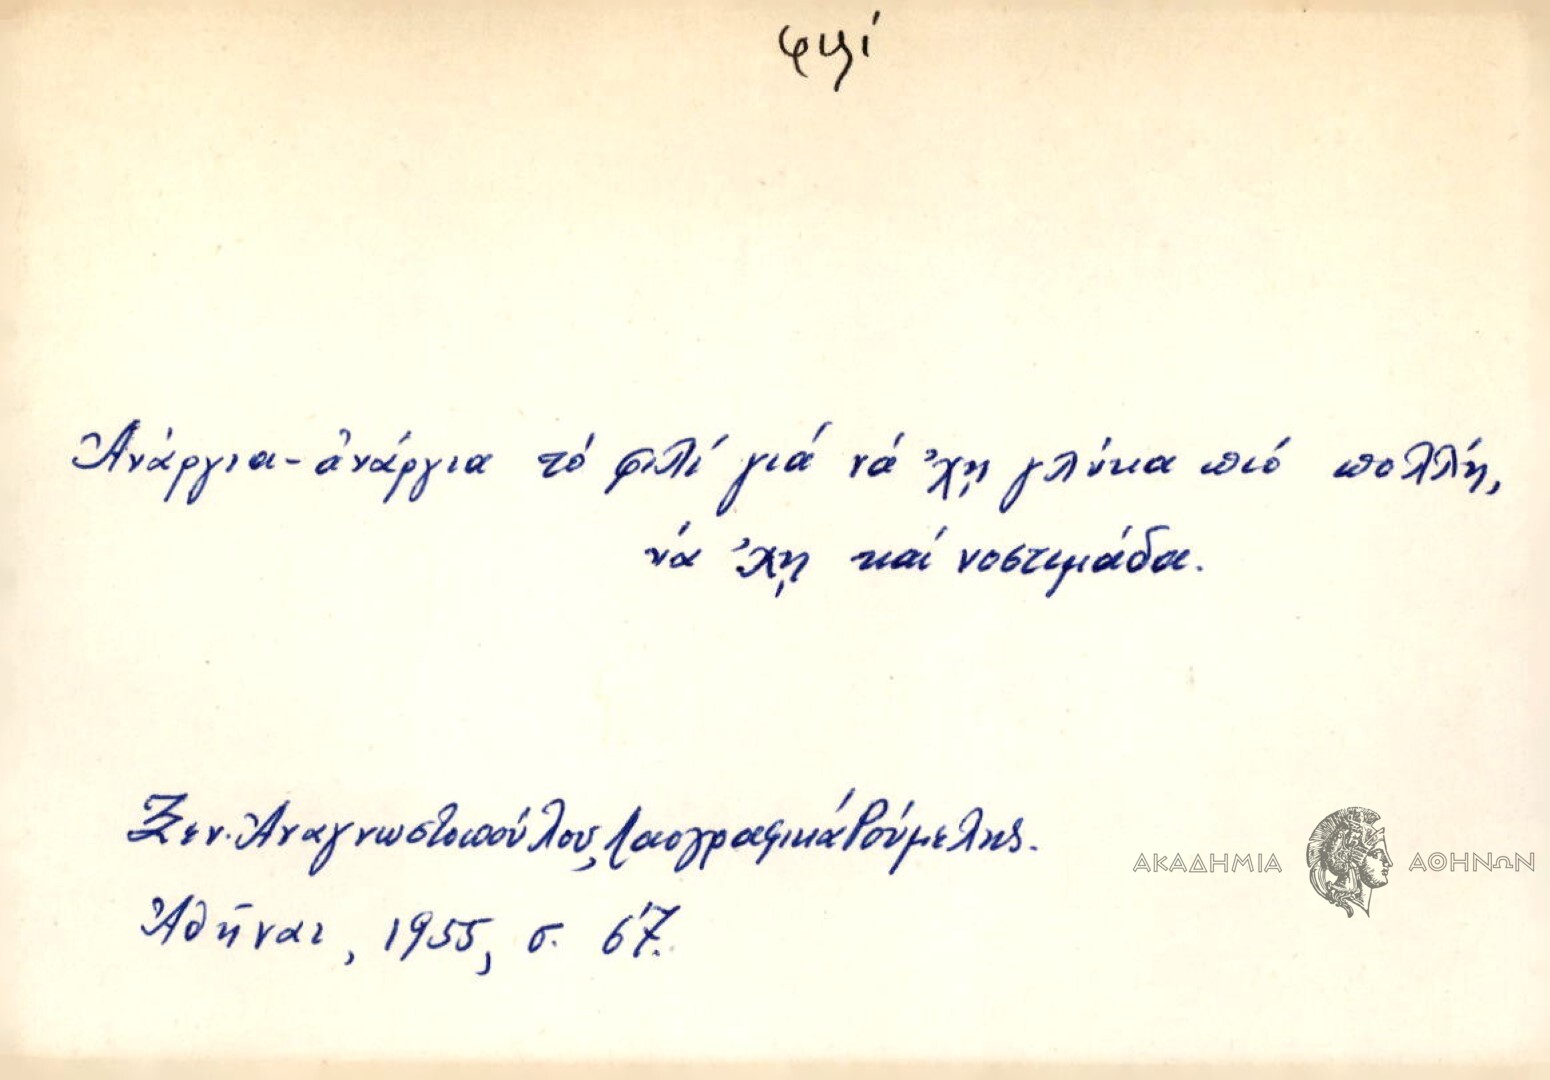 φιλί
Ἀνάργια-ἀνάργια τό φιλί γιά νά ᾽χῃ γλύκα πιό πολλή,
νά ᾽χῃ καί νοστιμάδα.
Ξεν. Ἀναγνωστοπούλου, Λαογραφικά Ρούμελης.
Ἀθῆναι, 1955, σ. 67.
ΑΚΑΔΗΜΙΑ ΑΘΗΝΩΝ